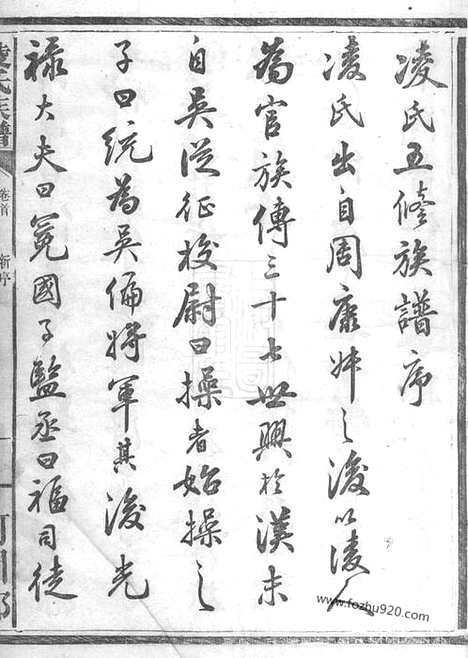 凌氏五修族譜序
凌氏出自周康叔之後以凌人
為官族傳三十七世興於漢末
自吳從征校尉曰操者始操之
子曰統為吳偏將軍其後光
祿大夫曰冕國子監丞曰福司徒
凌氏族譜
卷首
新序
河間郡
www.fozhu920.com